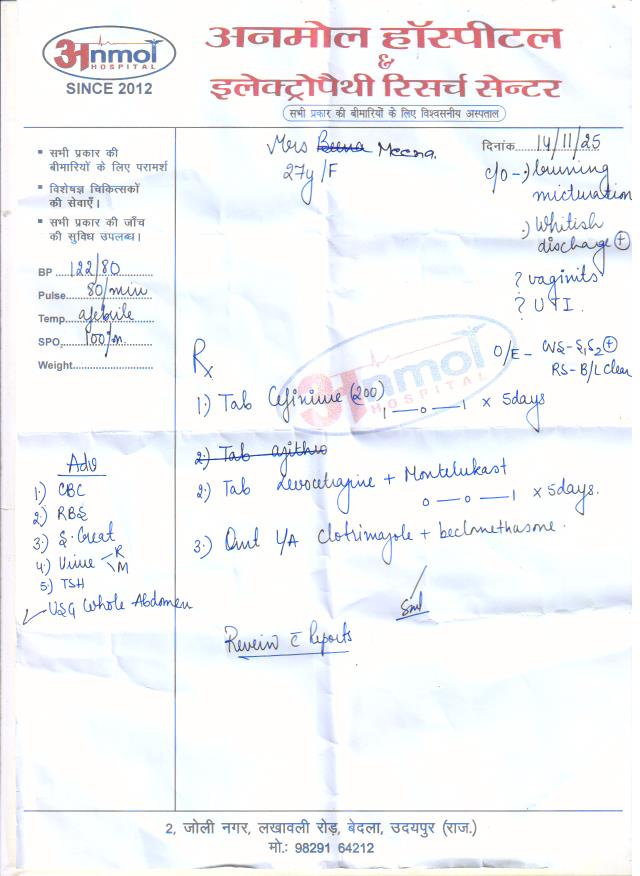 अnmol
HOSPITAL
SINCE 2012
अनमोल हॉस्पीटल
&
इलेक्ट्रोपैथी रिसर्च सेन्टर
सभी प्रकार की बीमारियों के लिए विश्वसनीय अस्पताल
▪ सभी प्रकार की
बीमारियों के लिए परामर्श
▪ विशेषज्ञ चिकित्सकों
की सेवाएँ।
▪ सभी प्रकार की जाँच
की सुविध उपलब्ध।
BP ....122/80
Pulse....80/min
Temp....afebrile
SPO2....100%
Weight............................
Mrs Beena Meena.
27y/F
दिनांक....14/11/25
c/o -·) burning
micturation
·) Whitish
discharge ⊕
? vaginits
? UTI.
O/E - CVS-S1S2 ⊕
RS- B/L clear
अnmol
HOSPITAL
Rx
1.) Tab Cefixime (200)
1—0—1 x 5days
2.) Tab azithro
2.) Tab Levocetrazine + Montelukast
0—0—1 x 5days.
3.) Oint L/A Clotrimazole + beclomethasone.
5ml
Review c̄ Reports
Adv
1.) CBC
2.) RBS
3.) S. Creat
4.) Urine R
M
5.) TSH
USG Whole Abdomen
2, जोली नगर, लखावली रोड़, बेदला, उदयपुर (राज.)
मो.: 98291 64212